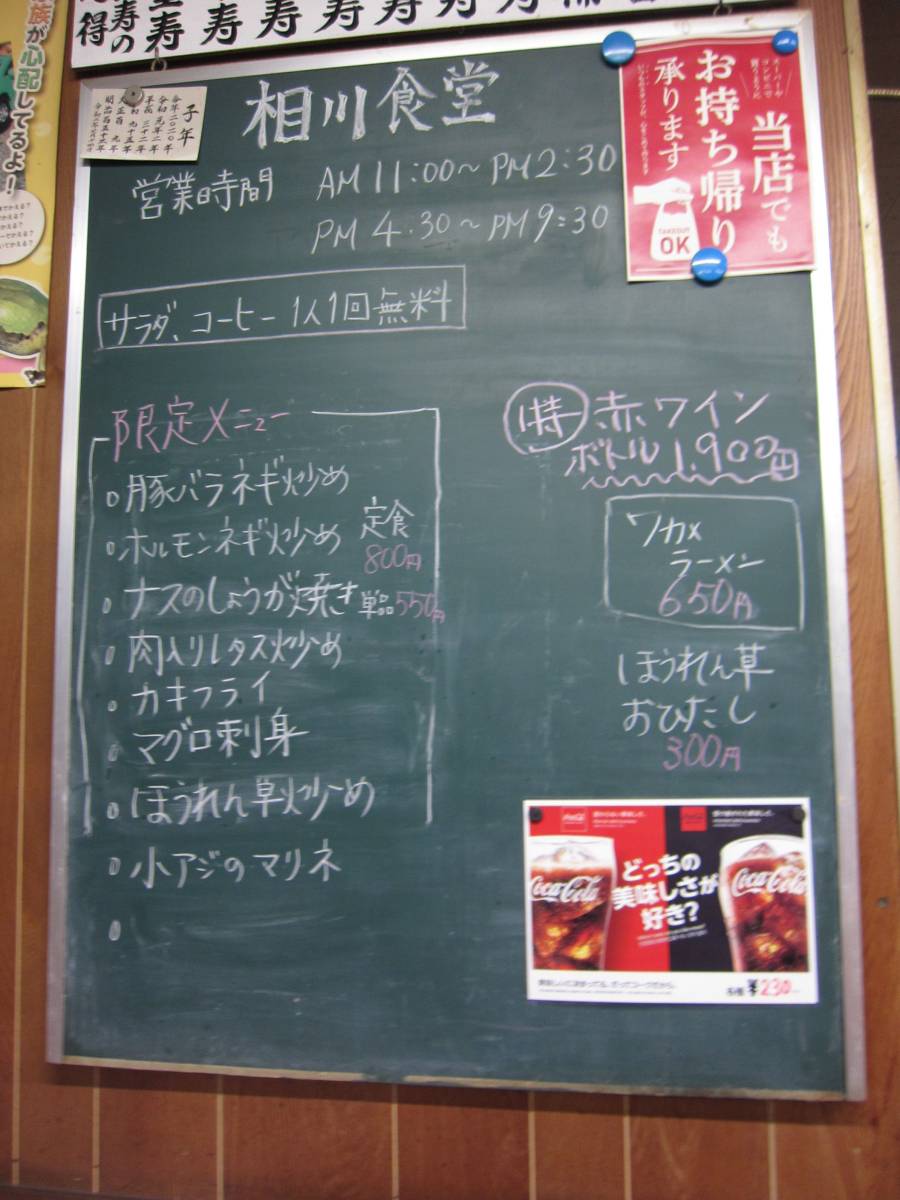 族が心配してるよ！
得
寿の
寿 寿 寿 寿 寿 寿 寿
子年
令和元年
相川食堂
営業時間 AM11:00～PM2:30
PM 4.30～PM9:30
当店でも
お持ち帰り
承ります
TAKEOUT
OK
サラダ、コーヒー 1人1回無料
限定メニュー
豚バラネギ炒め
ホルモンネギ炒め
定食
800円
ナスのしょうが焼き 単品550円
肉入りレタス炒め
カキフライ
マグロ刺身
ほうれん草炒め
小アジのマリネ
特 赤ワイン
ボトル 1.900円
ワカメ
ラーメン
650円
ほうれん草
おひたし
300円
Coca-Cola
どっちの
美味しさが
好き?
Coca-Cola
各種 ¥230